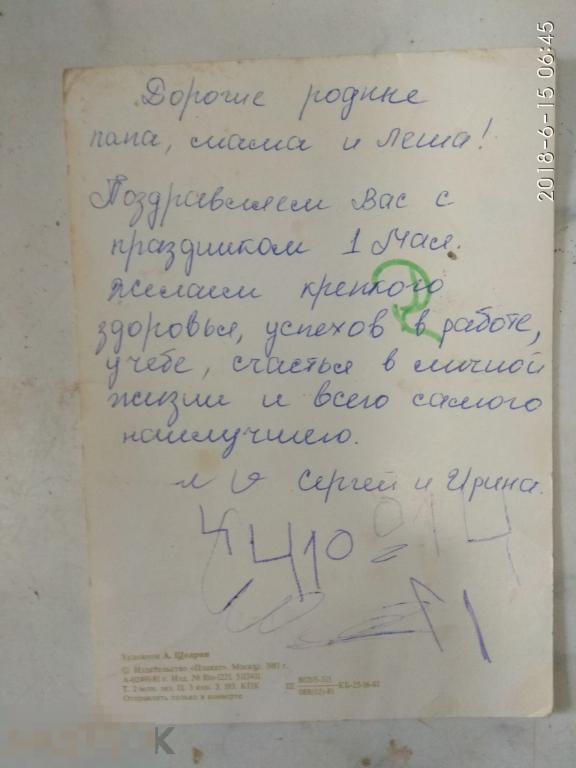 2018-6-15 06:45
Дорогие родные
папа, мама и Леша!
Поздравляем Вас с
праздником 1 Мая.
Желаем крепкого
здоровья, успехов в работе,
учебе, счастья в личной
жизни и всего самого
наилучшего.
Сергей и Ирина.
2
4 410 = 014
Художник А. Щедрин
© Издательство «Плакат». Москва. 1981 г.
Т. 2 млн. экз. Ц. 3 коп. З. 593. КПК
Отправлять только в конверте